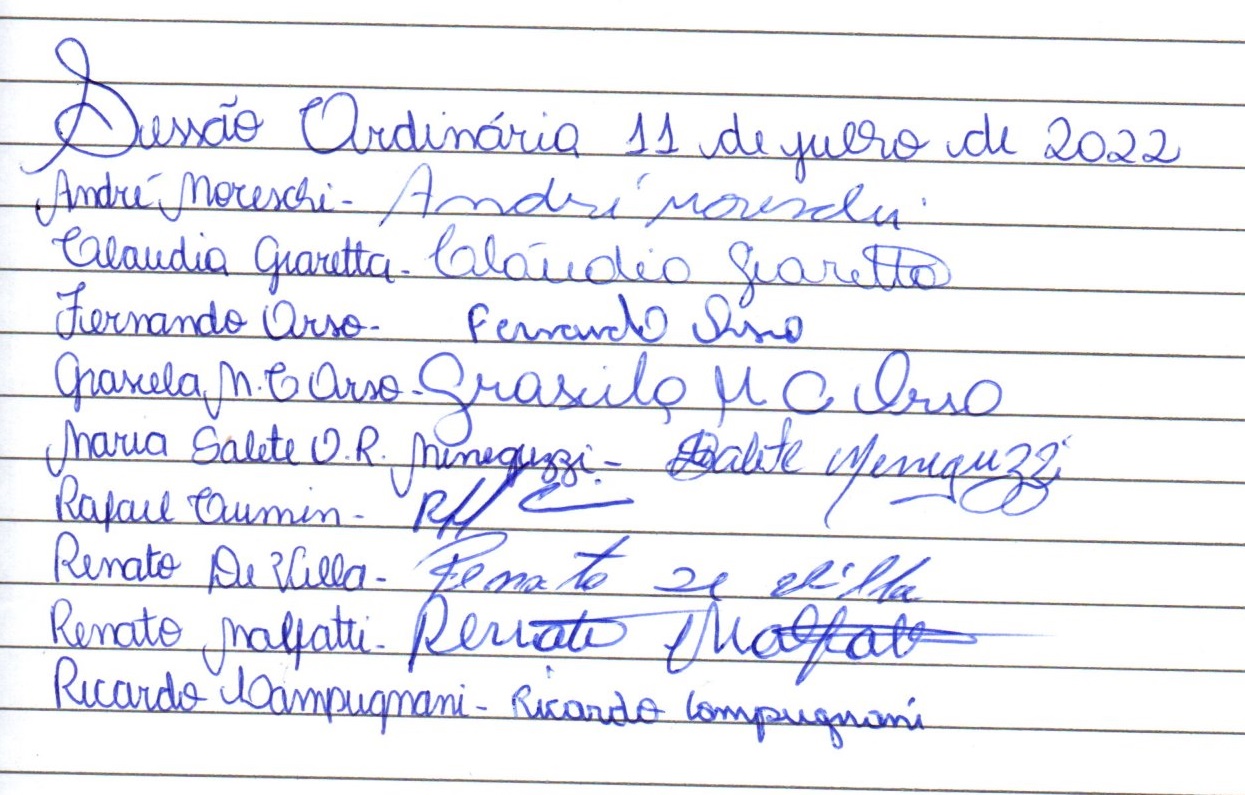 Sessão Ordinária 11 de julho de 2022
André Moreschi - André Moreschi
Claudia Giaretta - Claudia Giaretta
Fernando Orso - Fernando Orso
Grasiela M. C Orso - Grasiela M C Orso
Maria Salete O. R. Mineguzzi - Salete Meneguzzi
Rafael -
Renato De Villa - Renato de Villa
Renato Malfatti - Renato Malfatti
Ricardo Campugnani - Ricardo Campugnani